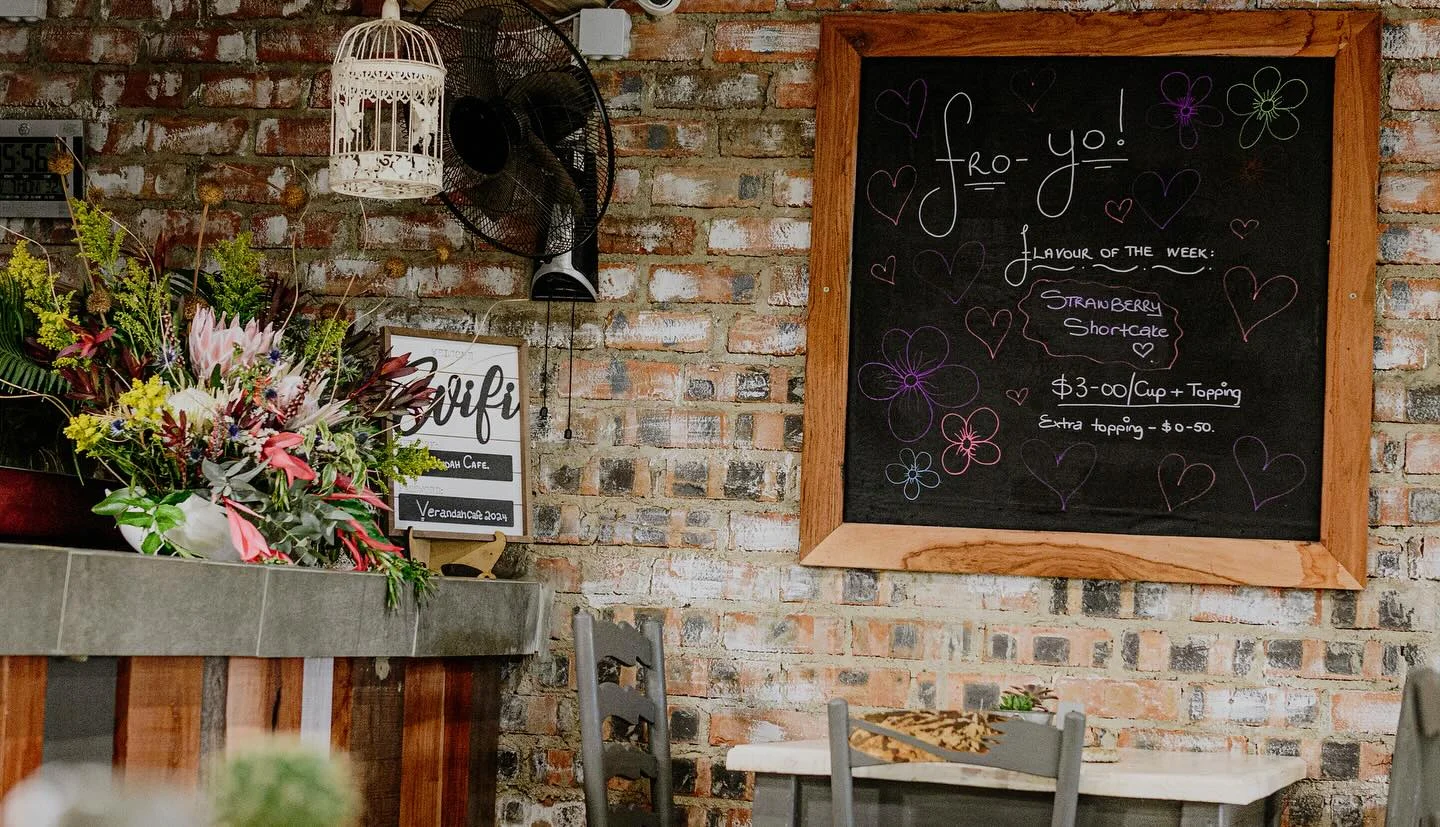 15:56
WELCOME
Wifi
NDAH CAFE.
VerandahCafe2024
fRO-yo!
fLAVOUR OF THE WEEK:
STRAWBERRY
Shortcake
$3-00/Cup + Topping
Extra topping - $0-50.